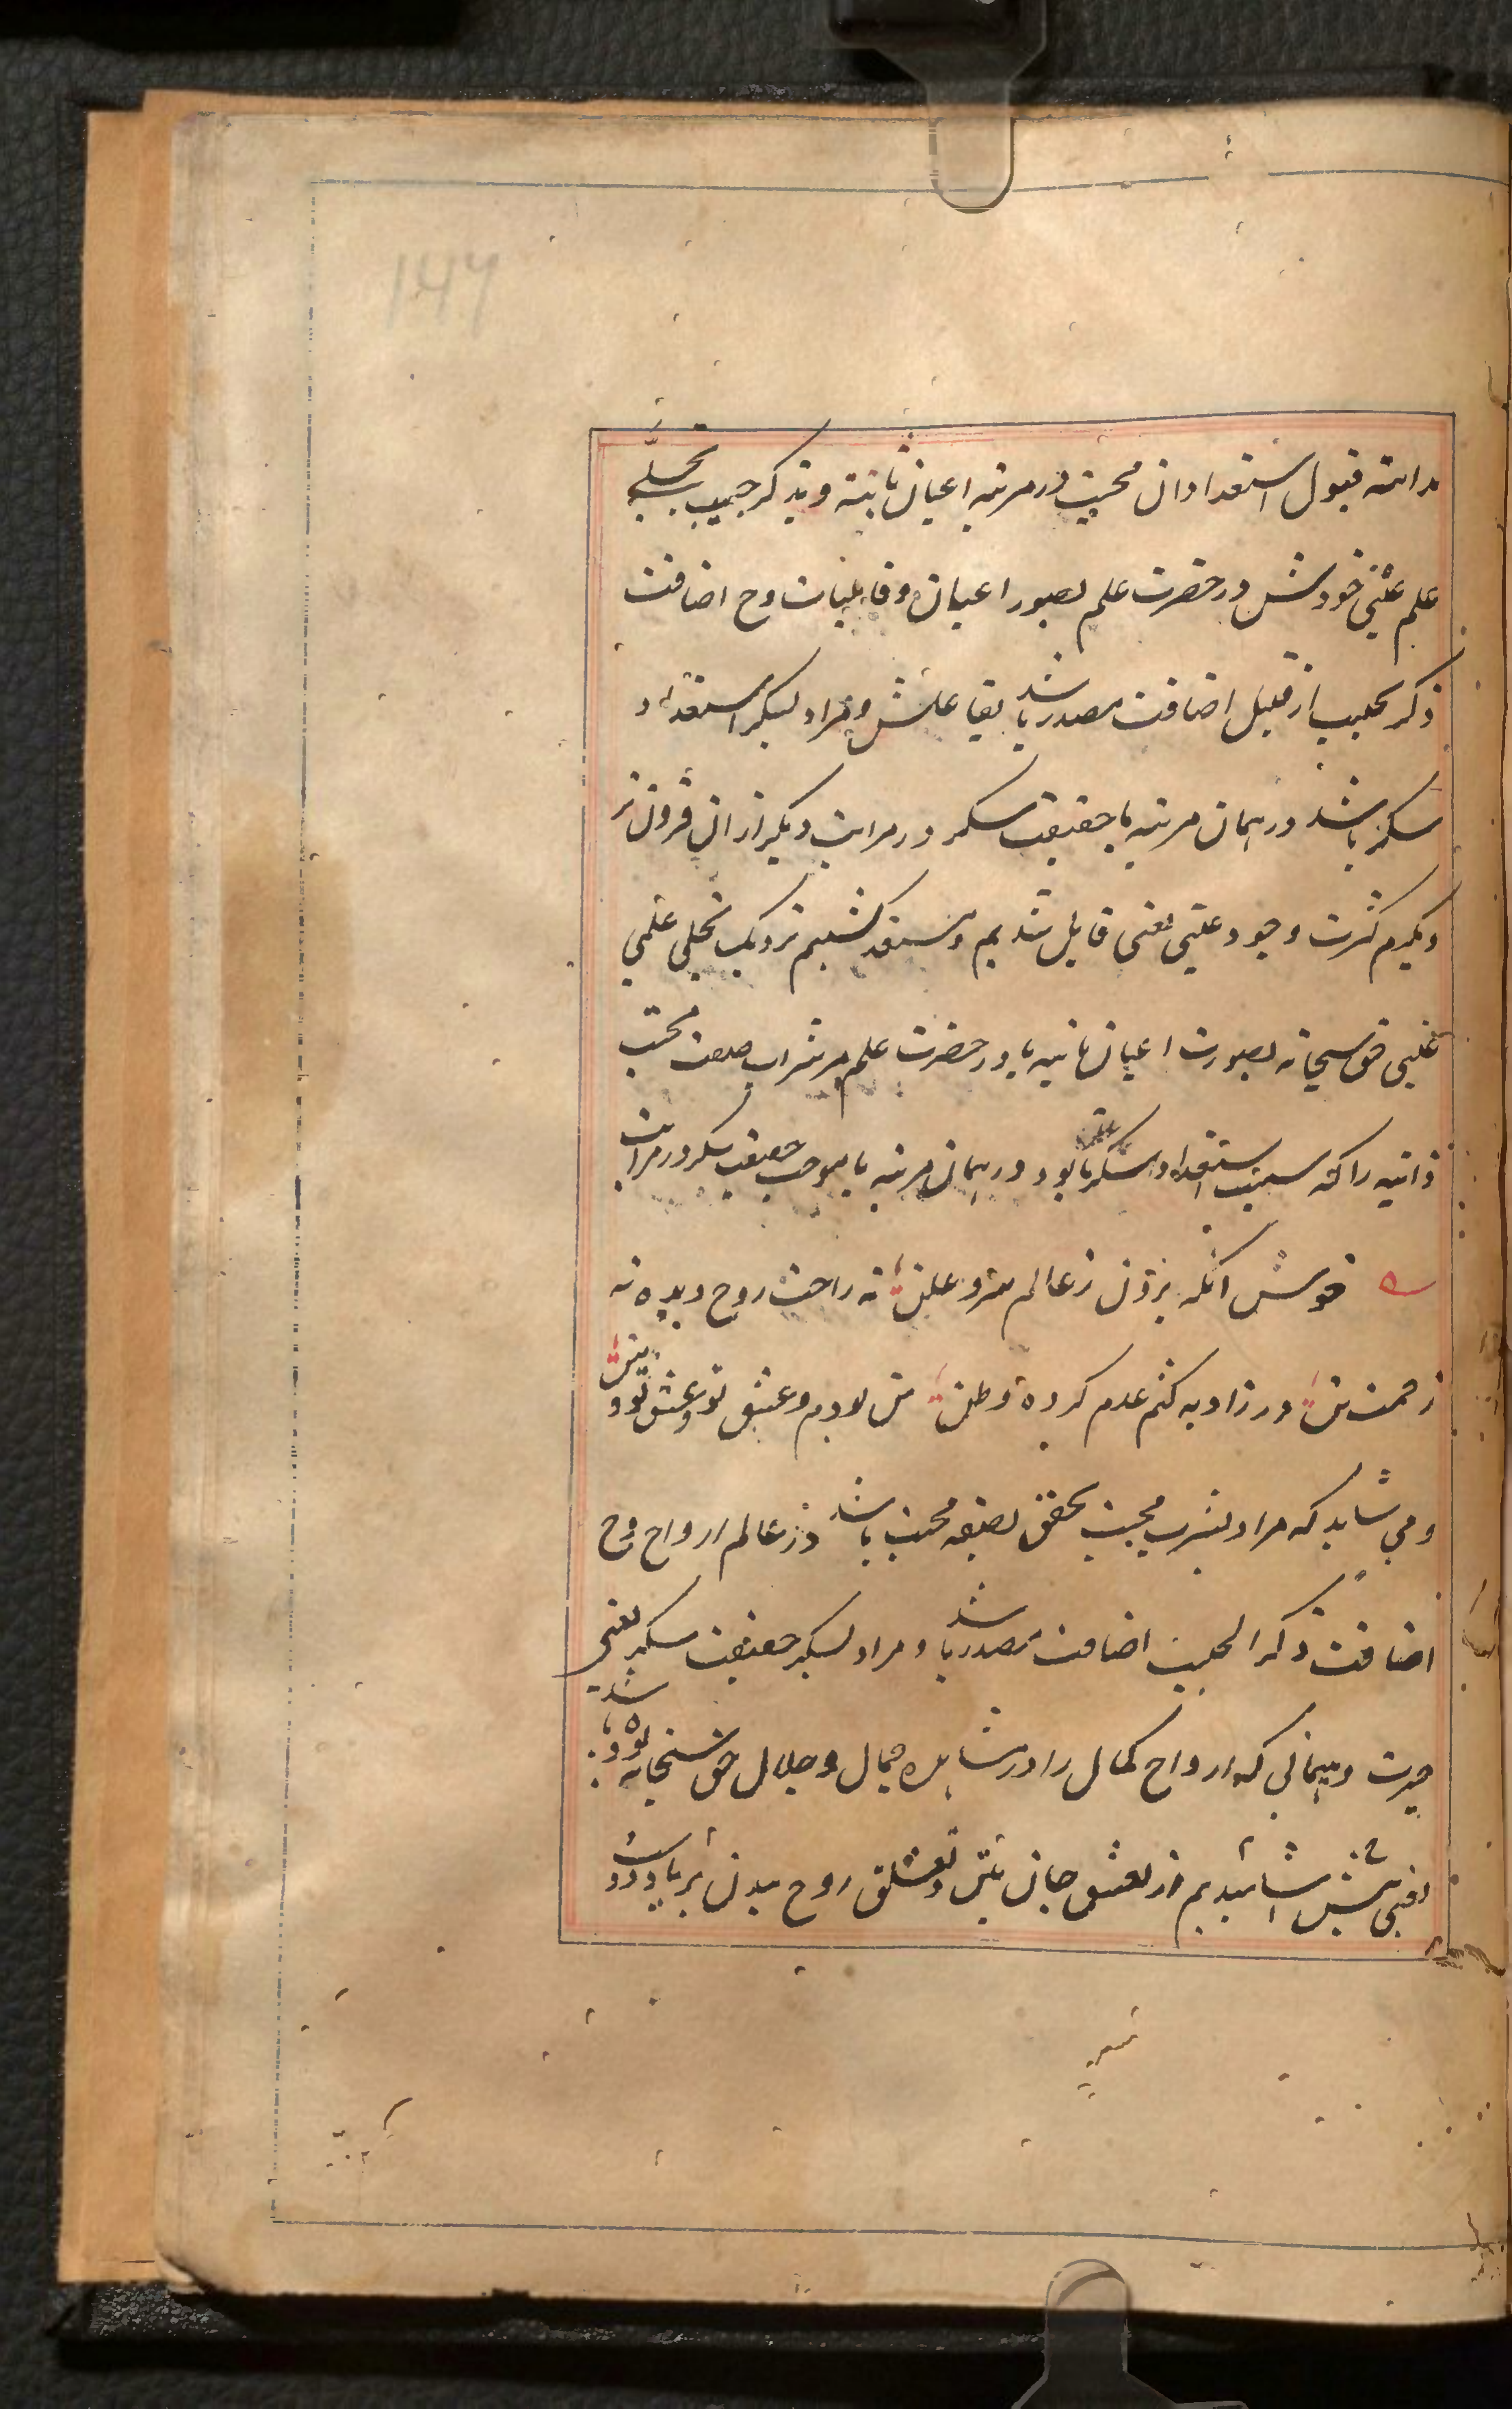 مدامه قبول استعداد ان محبت در مرتبه اعیان ثابته و بذکر حبیب تجلی
علم غیبی خودش در حضرت علم بصور اعیان و قابلیات وح اضافت
ذکر بحبیب از قبیل اضافت مصدر باشد بفاعلش و مراد بسکر استعداد
سکر باشد در همان مرتبه یا حقیقت سکر در مراتب دیگر از ان فروتر
دیگرم کثرت وجود عینی یعنی قابل شدیم و مستعد گشتیم نزدیک تجلی علمی
غیبی حق سبحانه بصورت اعیان ثابته یا در حضرت علم مر شراب محبت
ذاتیه را که سبب استعداد سکر ما بود در همان مرتبه یا موجب حقیقت سکر در مراتب
خوش آنکه برون ز عالم سر و علن نه راحت روح دیده نه
زحمت تن در زاویه کتم عدم کرده وطن من بودم و عشق تو و عشق تو و من
و می شاید که مراد بشرب محبت تحقق بصفه محبت باشد در عالم ارواح وح
اضافت ذکر الحبیب اضافت مصدر باشد و مراد بسکر حقیقت سکر یعنی
حیرت و هیمانی که ارواح کمال را در مشاهده جمال و جلال حق سبحانه بوده باشد
یعنی پیش از تعشق جان بتن و تعلق روح ببدن بر یاد دوست